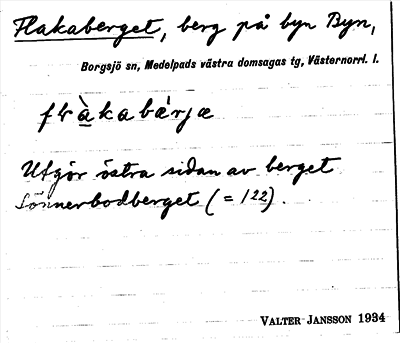 Flakaberget, berg på byn Byn,
Borgsjö sn, Medelpads västra domsagas tg, Västernorrl. l.
Utgör östra sidan av berget
Sönnerbodberget (= 122).
VALTER JANSSON 1934